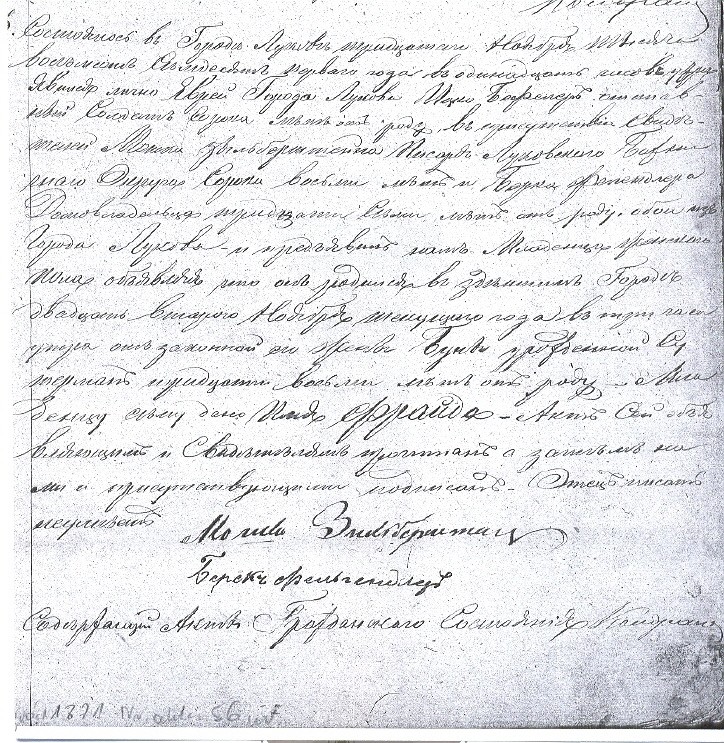 Состоялось въ Городѣ Луковѣ тридцатаго Ноября тысяча
восемьсотъ семьдесятъ перваго года въ одинадцать часовъ утра
Явился лично Еврей Города Лукова Ицко отстав
ный Солдатъ сорока лѣтъ отъ роду, въ присутствіи Свидѣ-
телей Мошка Зыльберштейна Писаря Луковскаго
Округа Сорока восьми лѣтъ и Берка Фельгендлера
Домовладельца тридцати Семи лѣтъ отъ роду, обои изъ
Города Лукова - и предъявилъ намъ Младенца женскаго
пола объявляя что онъ родился въ здѣшнемъ Городѣ
двадцать втораго Ноября текущаго года въ три часа
утра отъ законной его Жены урожденной
тридцати восьми лѣтъ отъ роду - Мла
денцу сему дано Имя Фрайда - Актъ Сей объя
вляющимъ и Свидѣтелямъ прочитанъ а затѣмъ на
ми и присутствующими подписанъ - Отецъ писать
неумѣетъ
Мошка Зильберштейн
Берекъ Фельгендлеръ
Содержащій Актовъ Гражданскаго Состоянія
1871 Nr aktu 56